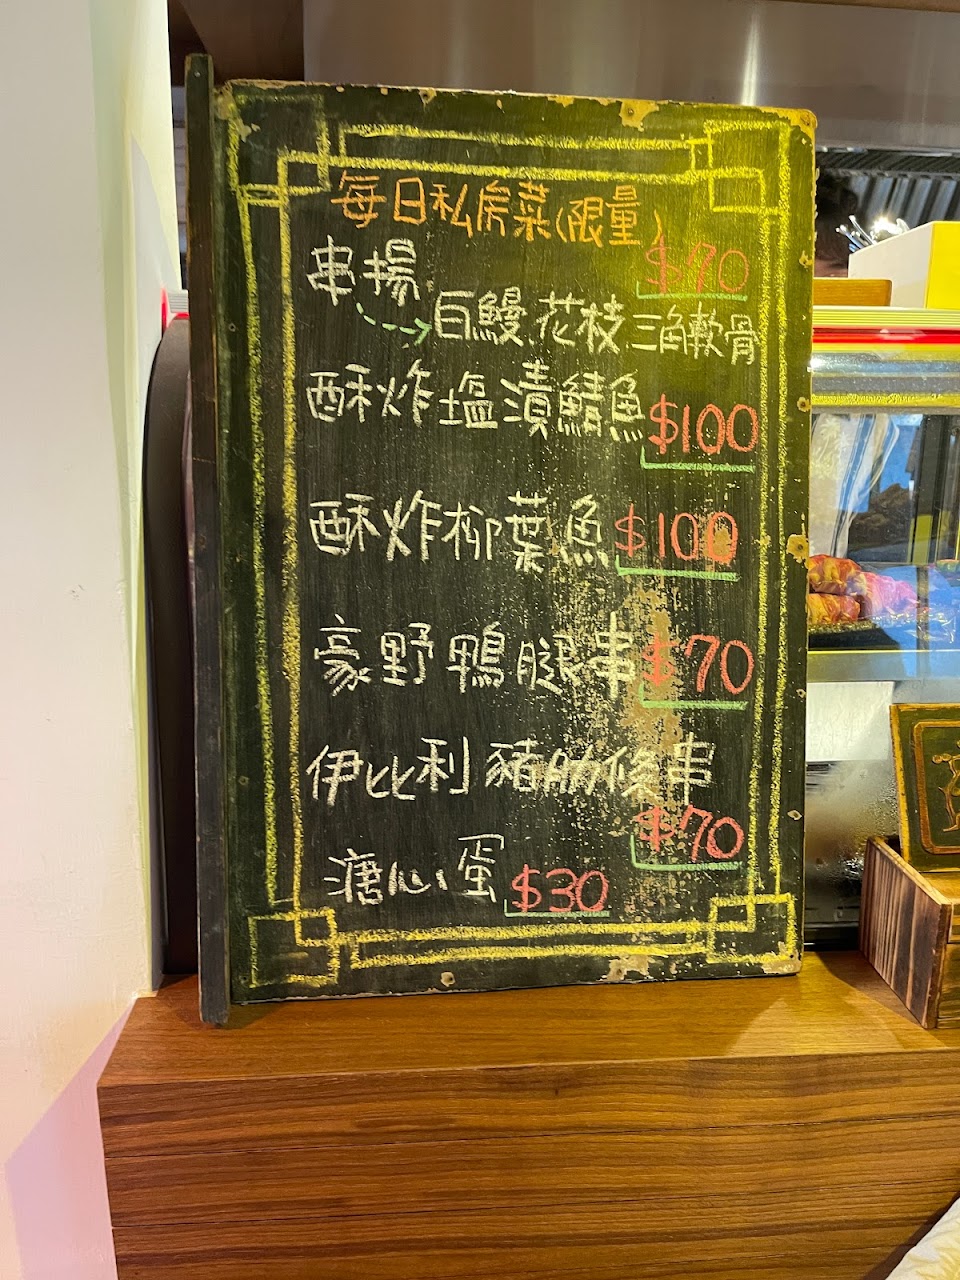 每日私房菜(限量)
串揚 $70
白鰻.花枝.三角軟骨
酥炸塩漬鯖魚 $100
酥炸柳葉魚 $100
豪野鴨腿串 $70
伊比利豬肋條串
$70
溏心蛋 $30